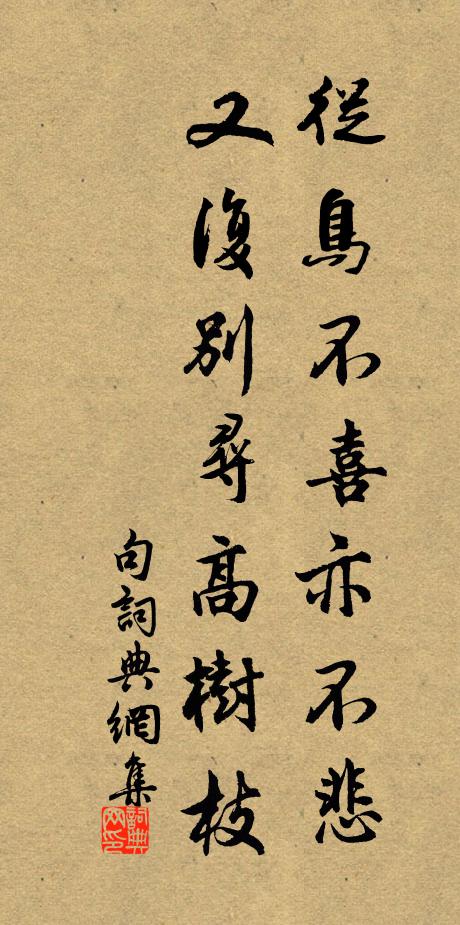 從鳥不喜亦不悲
又復別尋高樹枝
句詞典網集
詞典網印